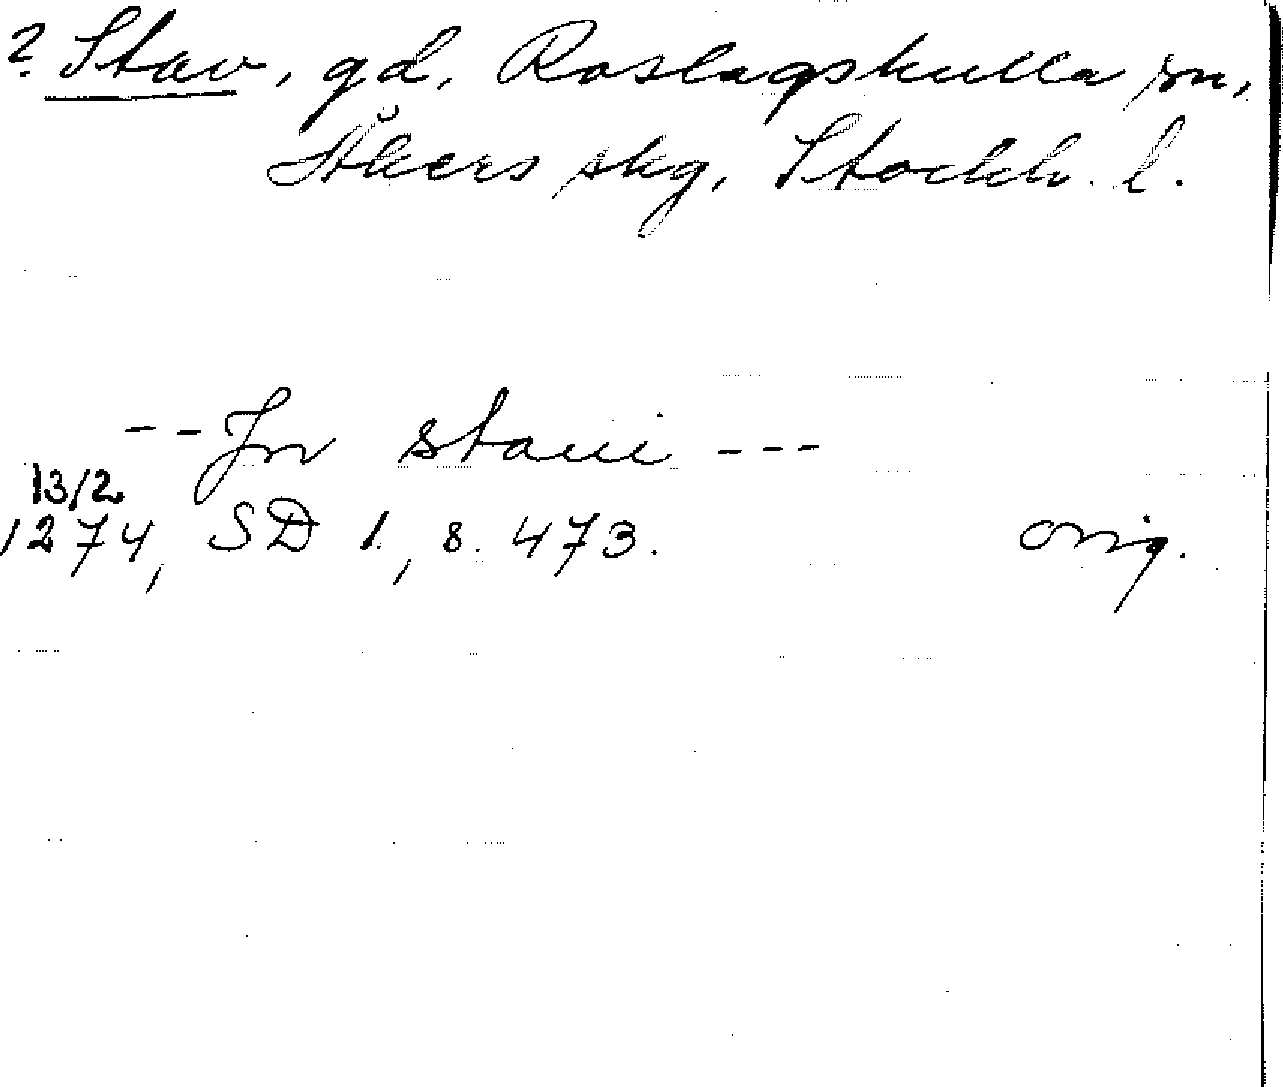 ? Stav, gd, Roslagskulla sn,
Åkers skg, Stockh. l.
-- Jn staui ---
13/2
1274, SD 1, s. 473. orig.